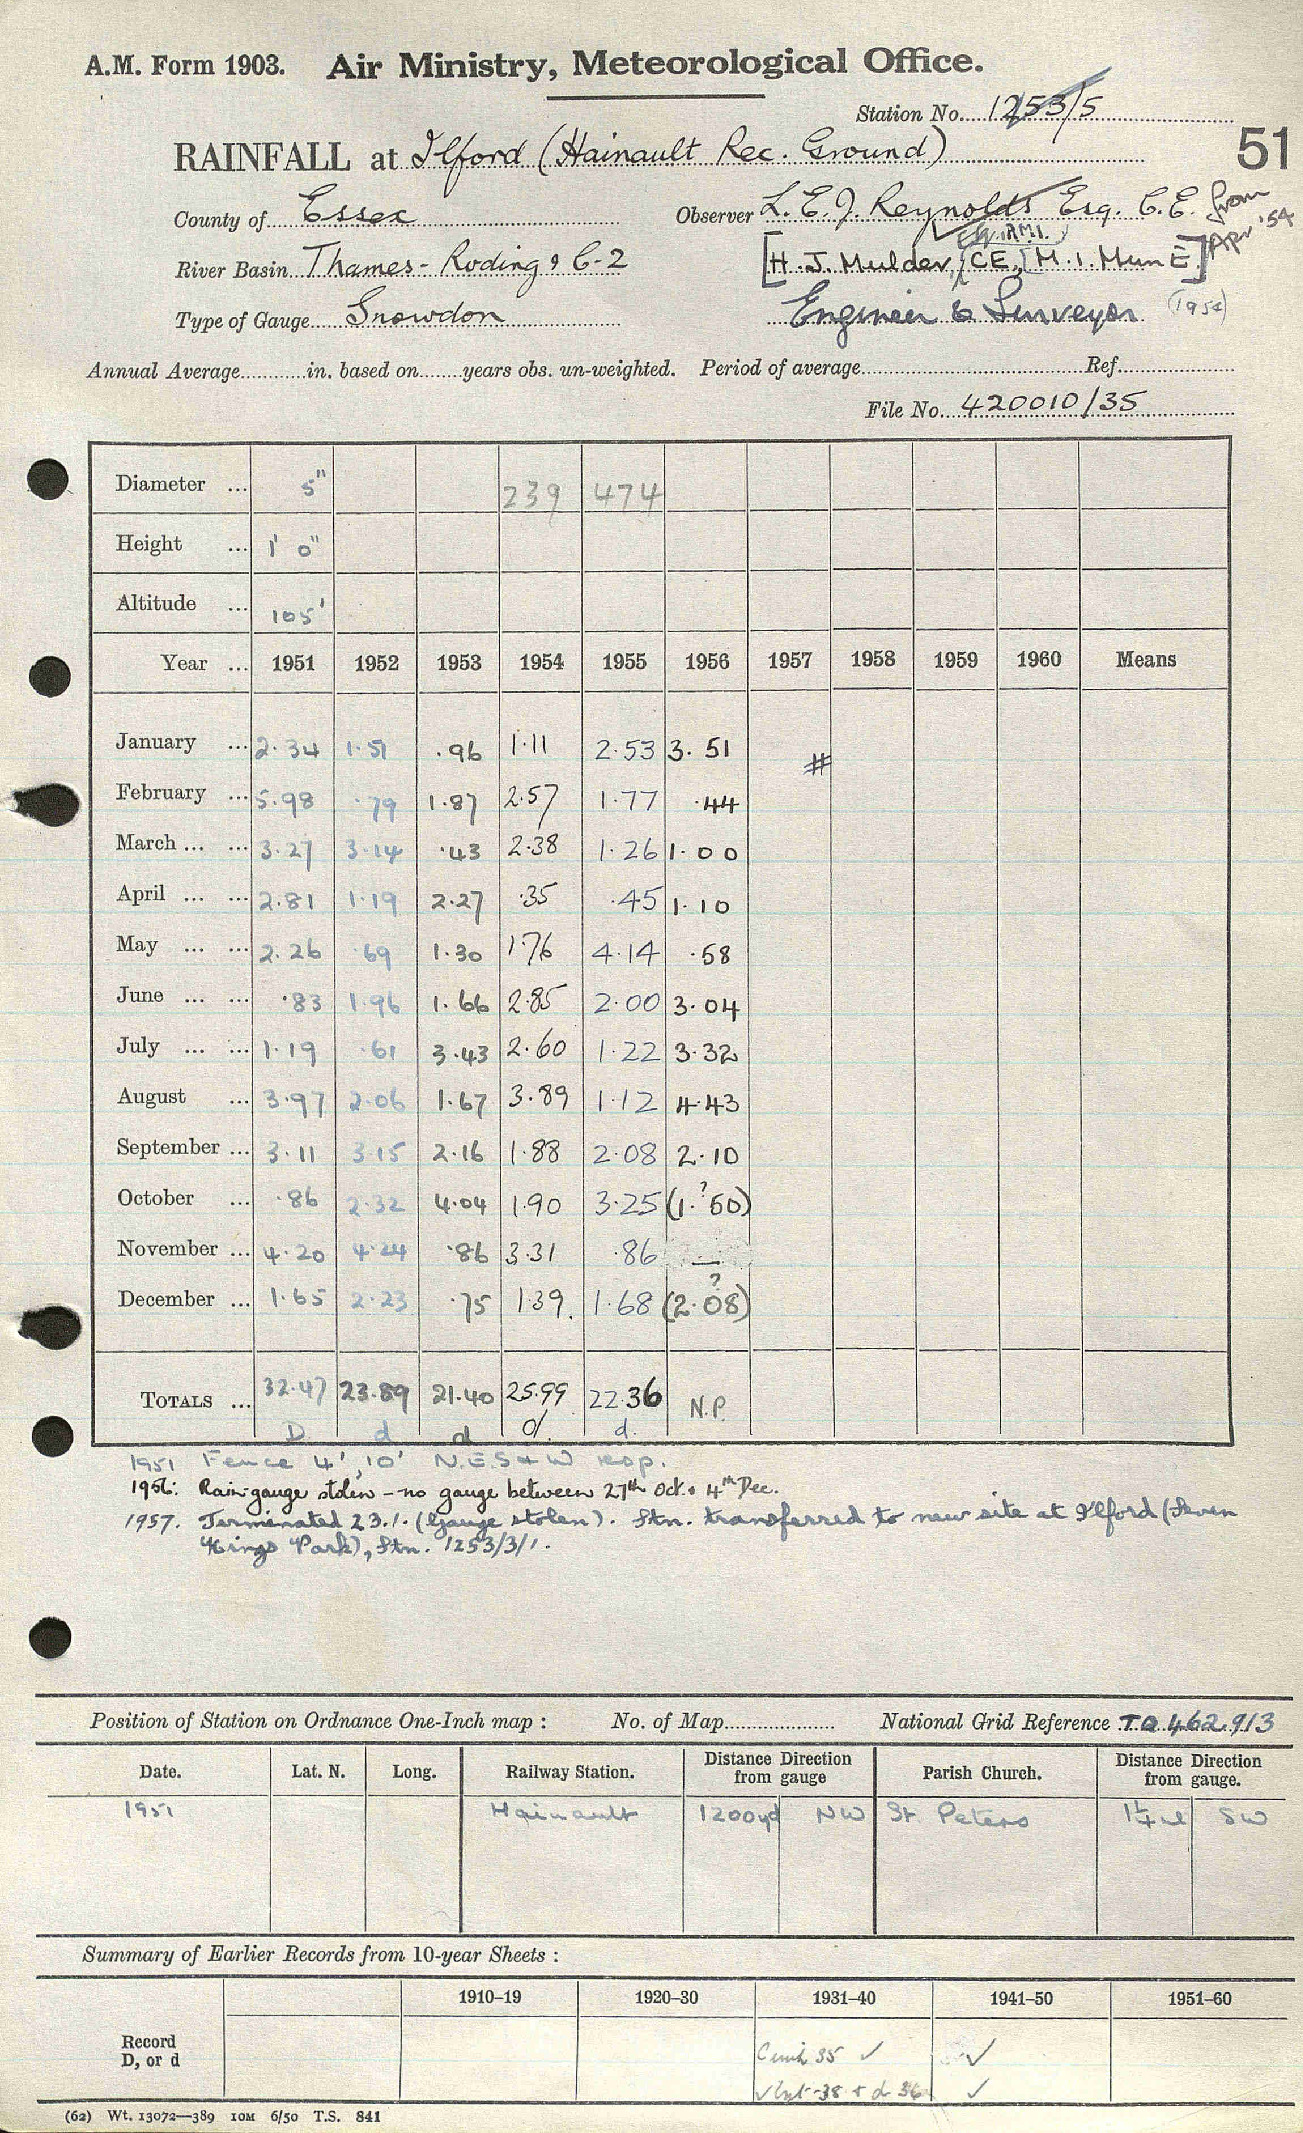 A.M. Form 1903. Air Ministry, Meteorological Office.
Station No. 1253/5
51
RAINFALL at Ilford (Hainault Rec. Ground)
County of Essex Observer L. E. J. Reynolds Esq. C.E. from Apr '54
River Basin Thames - Roding C-2 [H. J. Mulder, CE, M.I.Mun E.]
Type of Gauge Snowdon Engineer & Surveyor
Annual Average............in. based on........years obs. un-weighted. Period of average.............Ref.............
File No. 420010/35
Diameter ... 5" 239 474
Height ... 1' 0"
Altitude ... 105'
Year ... 1951 1952 1953 1954 1955 1956 1957 1958 1959 1960 Means
January ... 2.34 1.51 .96 1.11 2.53 3.51 #
February ... 5.98 .79 1.87 2.57 1.77 .44
March ... ... 3.27 3.14 .43 2.38 1.26 1.00
April ... ... 2.81 1.19 2.27 .35 .45 1.10
May ... ... 2.26 .69 1.30 1.76 4.14 .58
June ... ... .83 1.96 1.66 2.85 2.00 3.04
July ... ... 1.19 .61 3.43 2.60 1.22 3.32
August ... 3.97 2.06 1.67 3.89 1.12 4.43
September ... 3.11 3.15 2.16 1.88 2.08 2.10
October ... .86 2.32 4.04 1.90 3.25 (1.?50)
November ... 4.20 4.24 .86 3.31 .86 —
December ... 1.65 2.23 .75 1.39. 1.68 (2.?08)
TOTALS ... 32.47 23.89 21.40 25.99 22.36 N.P.
D d d d. d.
1951 Fence 4', 10' N.E.S & W resp.
1956: Rain gauge stolen - no gauge between 27th Oct. & 4th Dec.
1957. Terminated 23.1. (Gauge stolen). Stn. transferred to new site at Ilford (Seven
Kings Park), Stn. 1253/3/1.
Position of Station on Ordnance One-Inch map : No. of Map.................... National Grid Reference TQ 462.913
Date. Lat. N. Long. Railway Station. Distance Direction from gauge Parish Church. Distance Direction from gauge.
1951 Hainault 1200yd NW St. Peters 1¼ml SW
Summary of Earlier Records from 10-year Sheets :
1910–19 1920–30 1931–40 1941–50 1951–60
Record
D, or d
35 ✓ ✓
38 + d 36 ✓
(62) Wt. 13072—389 10M 6/50 T.S. 841